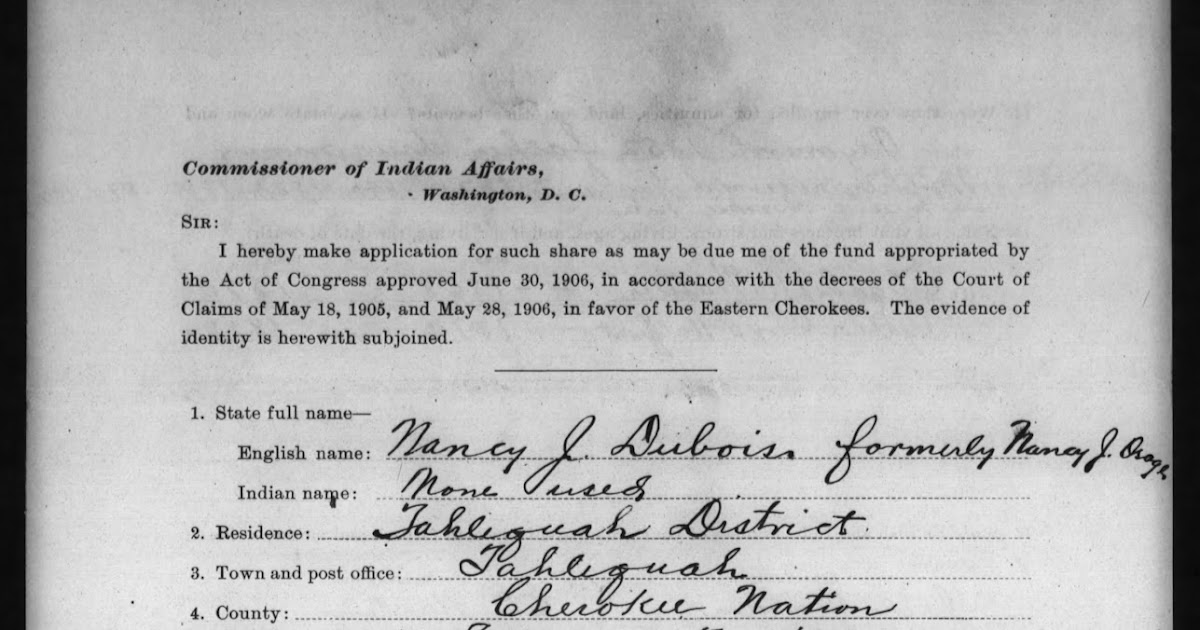 Commissioner of Indian Affairs,
Washington, D. C.
SIR:
I hereby make application for such share as may be due me of the fund appropriated by
the Act of Congress approved June 30, 1906, in accordance with the decrees of the Court of
Claims of May 18, 1905, and May 28, 1906, in favor of the Eastern Cherokees. The evidence of
identity is herewith subjoined.
1. State full name—
English name: Nancy J. Dubois. formerly Nancy J. Osage
Indian name: None used
2. Residence: Tahlequah District
3. Town and post office: Tahlequah
4. County: Cherokee Nation